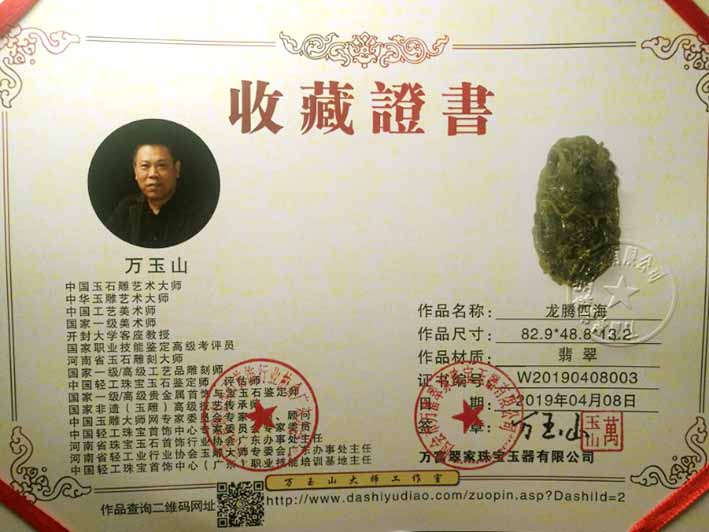 收藏證書
万玉山
中国玉石雕艺术大师
中华玉雕艺术大师
中国工艺美术师
国家一级美术师
开封大学客座教授
国家职业技能鉴定高级考评员
河南省玉石雕刻大师
国家一级/高级工艺品雕刻师
中国轻工珠宝玉石鉴定师 评估师
国家一级/高级贵金属首饰与宝玉石鉴定师
国家非遗（玉雕）高级技艺传承师
中国玉雕大师网专家委员会专家 顾问
中国轻工珠宝首饰中心专家委员会专家委员
河南省珠宝玉石首饰行业协会广东办事处主任
河南省轻工业行业协会玉雕大师专委会广东办事处主任
中国轻工珠宝首饰中心（广东）职业技能培训基地主任
作品名称: 龙腾四海
作品尺寸: 82.9*48.8*13.2
作品材质: 翡翠
证书编号: W20190408003
日 期: 2019年04月08日
签 章: 万玉山
萬玉山
万富翠家珠宝玉器有限公司
万玉山大师工作室
作品查询二维码网址
http://www.dashiyudiao.com/zuopin.asp?DashiId=2